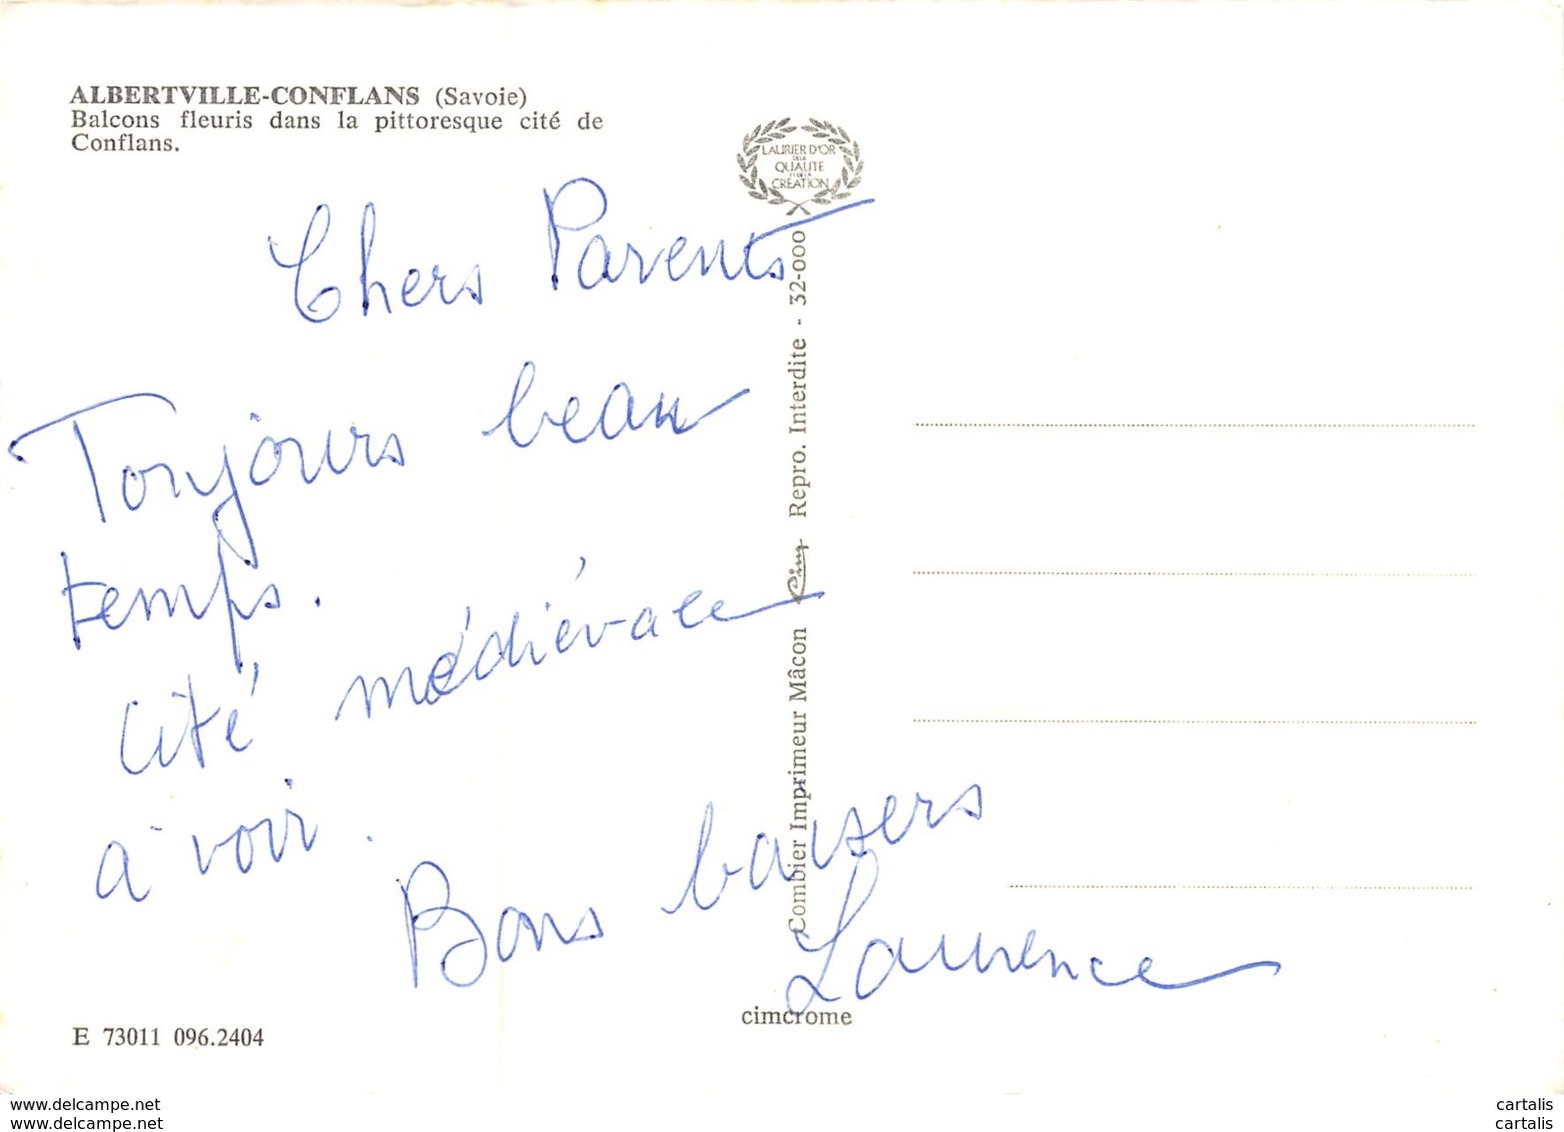 ALBERTVILLE-CONFLANS (Savoie)
Balcons fleuris dans la pittoresque cité de
Conflans.
LAURIER D'OR
DE LA
QUALITE
ET DE LA
CREATION
Chers Parents
Toujours beau
temps.
Cité médiévale
à voir.
Bons baisers
Laurence
Combier Imprimeur Mâcon Cim Repro. Interdite - 32-000
cimcrome
E 73011 096.2404
www.delcampe.net
www.delcampe.net
cartalis
cartalis